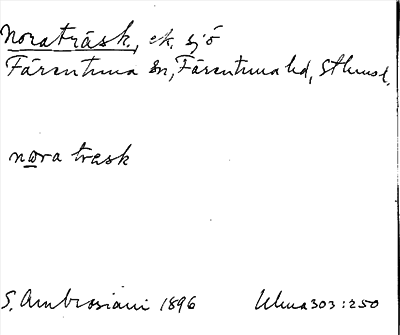 Noraträsk, ek. sjö
Färentuna sn, Färentuna hd, Sthmsl.
nora trask
S. Ambrosiani 1896 Ulma 303:250